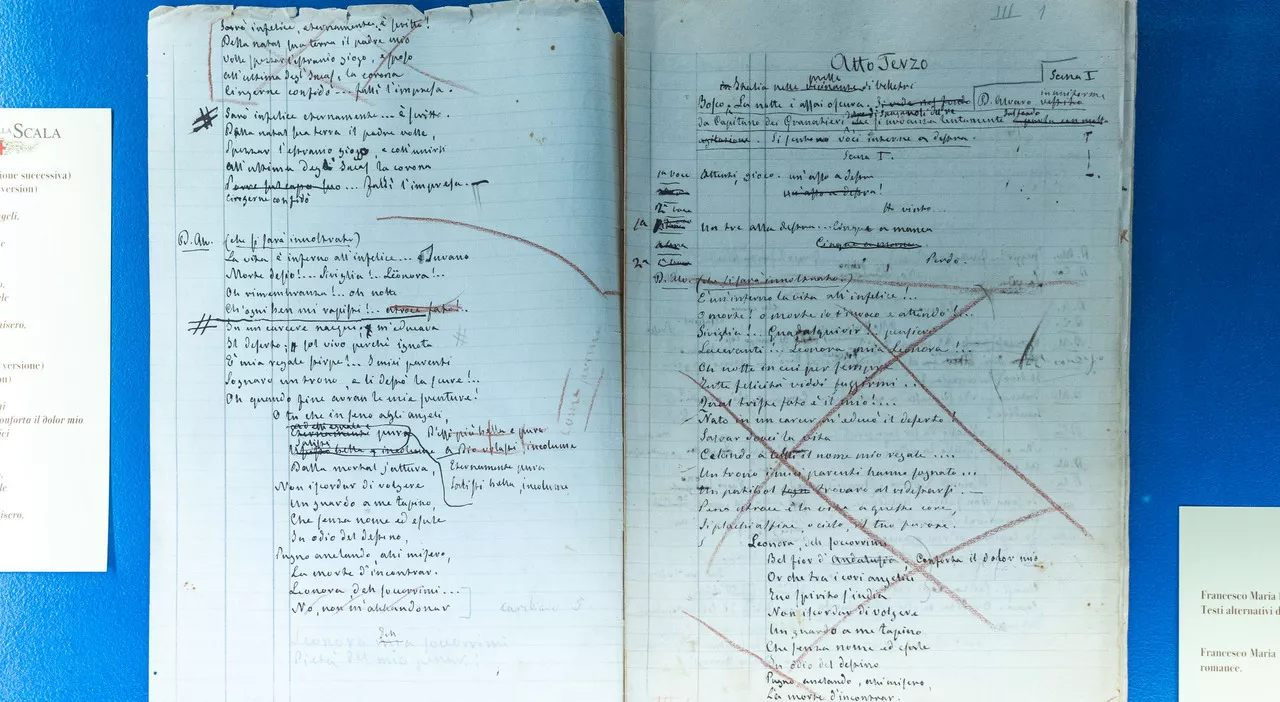 LA SCALA
ione successiva)
version)
geli.
e
o.
ele
misero.
versione)
on)
ni
onforta il dolor mio
ici
o.
le
isero.
Sarà infelice, eternamente.. è scritto!
Della natal sua terra il padre mio
Volle spezzar l'estranio giogo, e sposo
All'ultima degl'Incas, la corona
Cingerne confidò... fallì l'impresa.
# Sarà infelice eternamente... è scritto.
Della natal sua terra il padre volle,
Spezzar l'estranio giogo, e coll'unirsi
All'ultima degl'Incas la corona
... fallì l'impresa.
Cingerne confidò
D. Alv. (che si sarà innoltrato)
La vita è inferno all'infelice... Invano
Morte desìo!... Siviglia!.. Leonora!..
Oh rimembranza!.. oh notte
Ch'ogni ben mi rapisti!.. atroce fato!
# In un carcere nacqui, m'educava
Il deserto; sol vivo perchè ignota
È mia regale stirpe!.. I miei parenti
Sognaro un trono, e li destò la scure!..
Oh quando fine avran le mie sventure!
O tu che in seno agli angeli,
Eternamente pura
Salisti bella, incolume
Dalla mortal jattura,
Non iscordar di volgere
Un guardo a me tapino,
Che senza nome ed esule
In odio del destino,
Pugno anelando, ahi misero,
La morte d'incontrar.
Leonora deh soccorrimi...
No, non m'abbandonar
Salisti bella, incolume
Eternamente pura
Leonora mia soccorrimi
Deh
Pietà del mio penar!
III 1
Atto Terzo
Scena I
In Italia nelle di Velletri
Bosco. La notte è assai oscura. D. Alvaro vestito
in uniforme
da Capitano dei Granatieri Spagnoli del re si avanza lentamente
agitazione. Si sentono voci interne a destra.
Scena I.
1a voce Attenti, gioco. un'asso a destra
un'asso a destra!
2a voce Ho vinto..
1a Un tre alla destra... Cinque a manca
Cinque a manca..
2a Perdo.
D. Alv. (che si sarà innoltrato)
È un'inferno la vita all'infelice!..
O morte! o morte io t'invoco e attendo!..
Siviglia!.. Guadalquivir!.. pensieri
Laceranti... Leonora mia Leonora!..
Oh notte in cui per sempre
Tutte felicità vidi fuggirmi...
Qual triste fato è il mio!...
Nato in un carcer m'educò il deserto!
Salvar dovei la vita
Celando a tutti il nome mio regale...
Un trono i miei parenti hanno sognato...
Un patibol trovaro al ridestarsi.
Pena atroce è la vita a questo core,
Si plachi alfine, o cielo, il tuo furore.
Leonora, deh soccorrimi
Bel fior d'Andalusia Conforta il dolor mio
Or che tra i cori angelici
Tuo spirito s'india
Non iscordar di volgere
Un guardo a me tapino
Che senza nome ed esule
In odio del destino
Pugno, anelando, ahi misero,
La morte d'incontrar.
Francesco Maria
Testi alternativi d
Francesco Maria
romance.